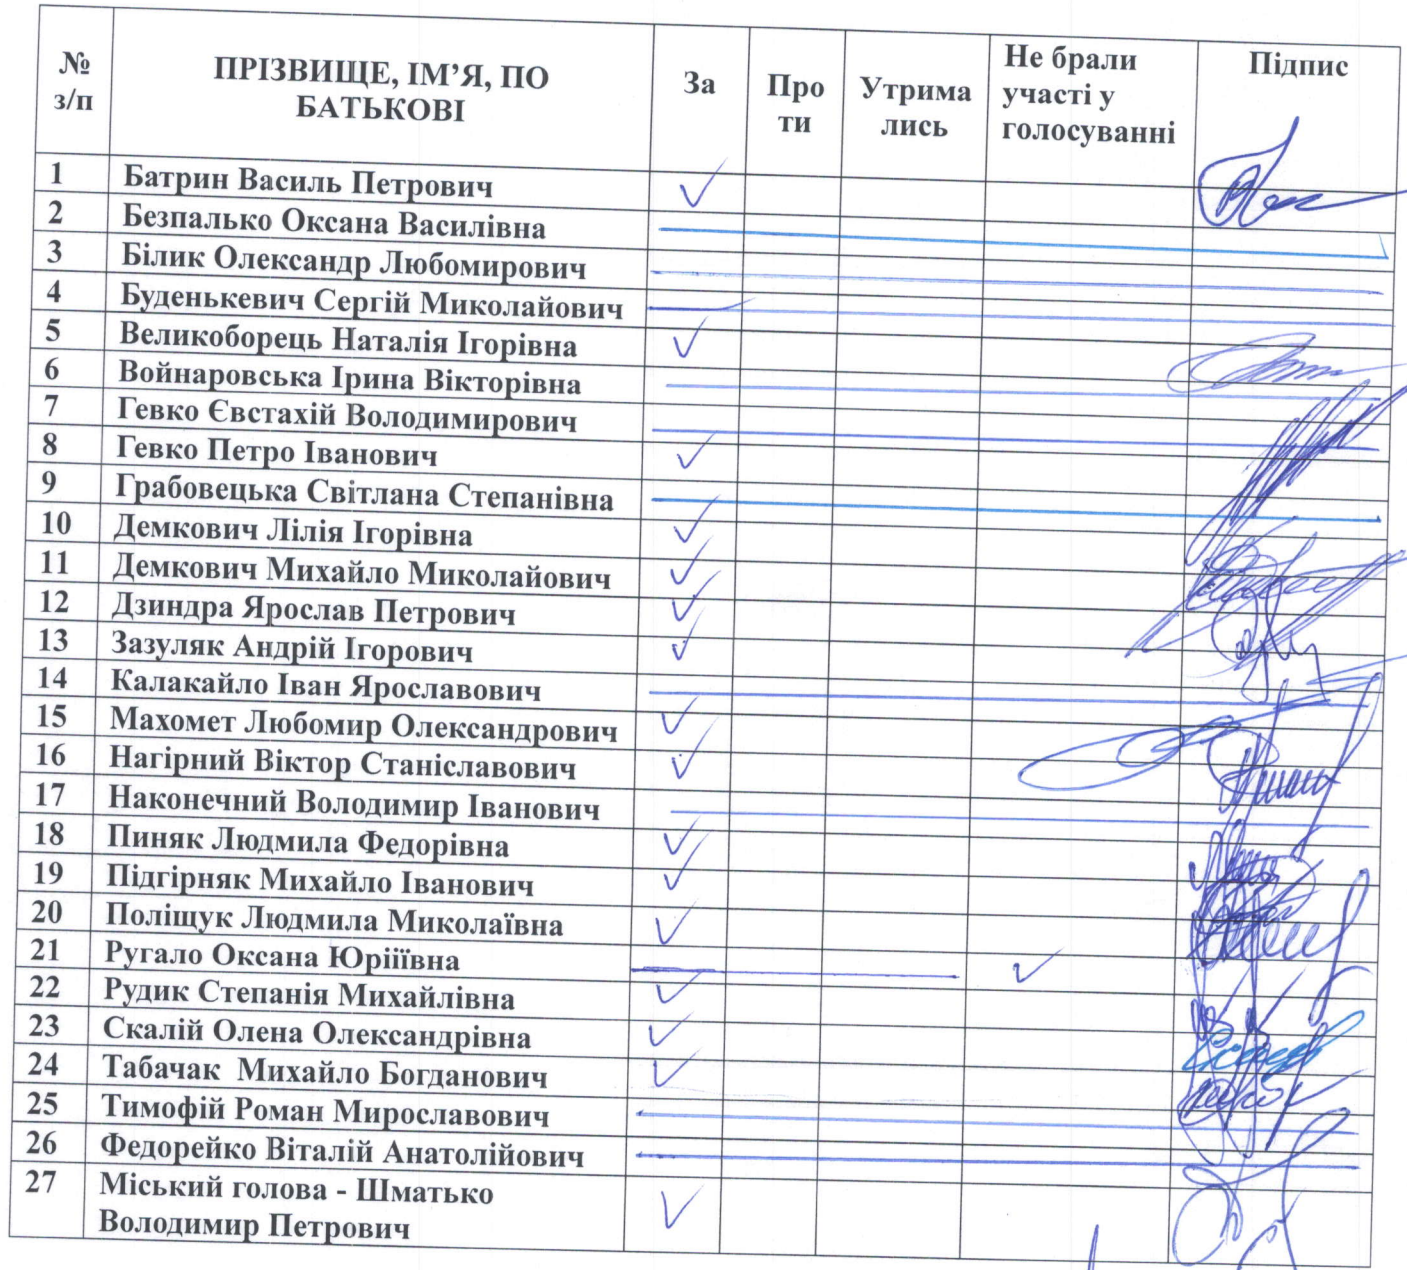 № з/п
ПРІЗВИЩЕ, ІМ’Я, ПО
БАТЬКОВІ
За
Про
ти
Утрима
лись
Не брали
участі у
голосуванні
Підпис
1 Батрин Василь Петрович ✓
2 Безпалько Оксана Василівна
3 Білик Олександр Любомирович
4 Буденькевич Сергій Миколайович
5 Великоборець Наталія Ігорівна ✓
6 Войнаровська Ірина Вікторівна
7 Гевко Євстахій Володимирович
8 Гевко Петро Іванович ✓
9 Грабовецька Світлана Степанівна
10 Демкович Лілія Ігорівна ✓
11 Демкович Михайло Миколайович ✓
12 Дзиндра Ярослав Петрович ✓
13 Зазуляк Андрій Ігорович ✓
14 Калакайло Іван Ярославович
15 Махомет Любомир Олександрович ✓
16 Нагірний Віктор Станіславович ✓
17 Наконечний Володимир Іванович
18 Пиняк Людмила Федорівна ✓
19 Підгірняк Михайло Іванович ✓
20 Поліщук Людмила Миколаївна ✓
21 Ругало Оксана Юріїївна ✓
22 Рудик Степанія Михайлівна ✓
23 Скалій Олена Олександрівна ✓
24 Табачак Михайло Богданович ✓
25 Тимофій Роман Мирославович
26 Федорейко Віталій Анатолійович
27 Міський голова - Шматько
Володимир Петрович ✓